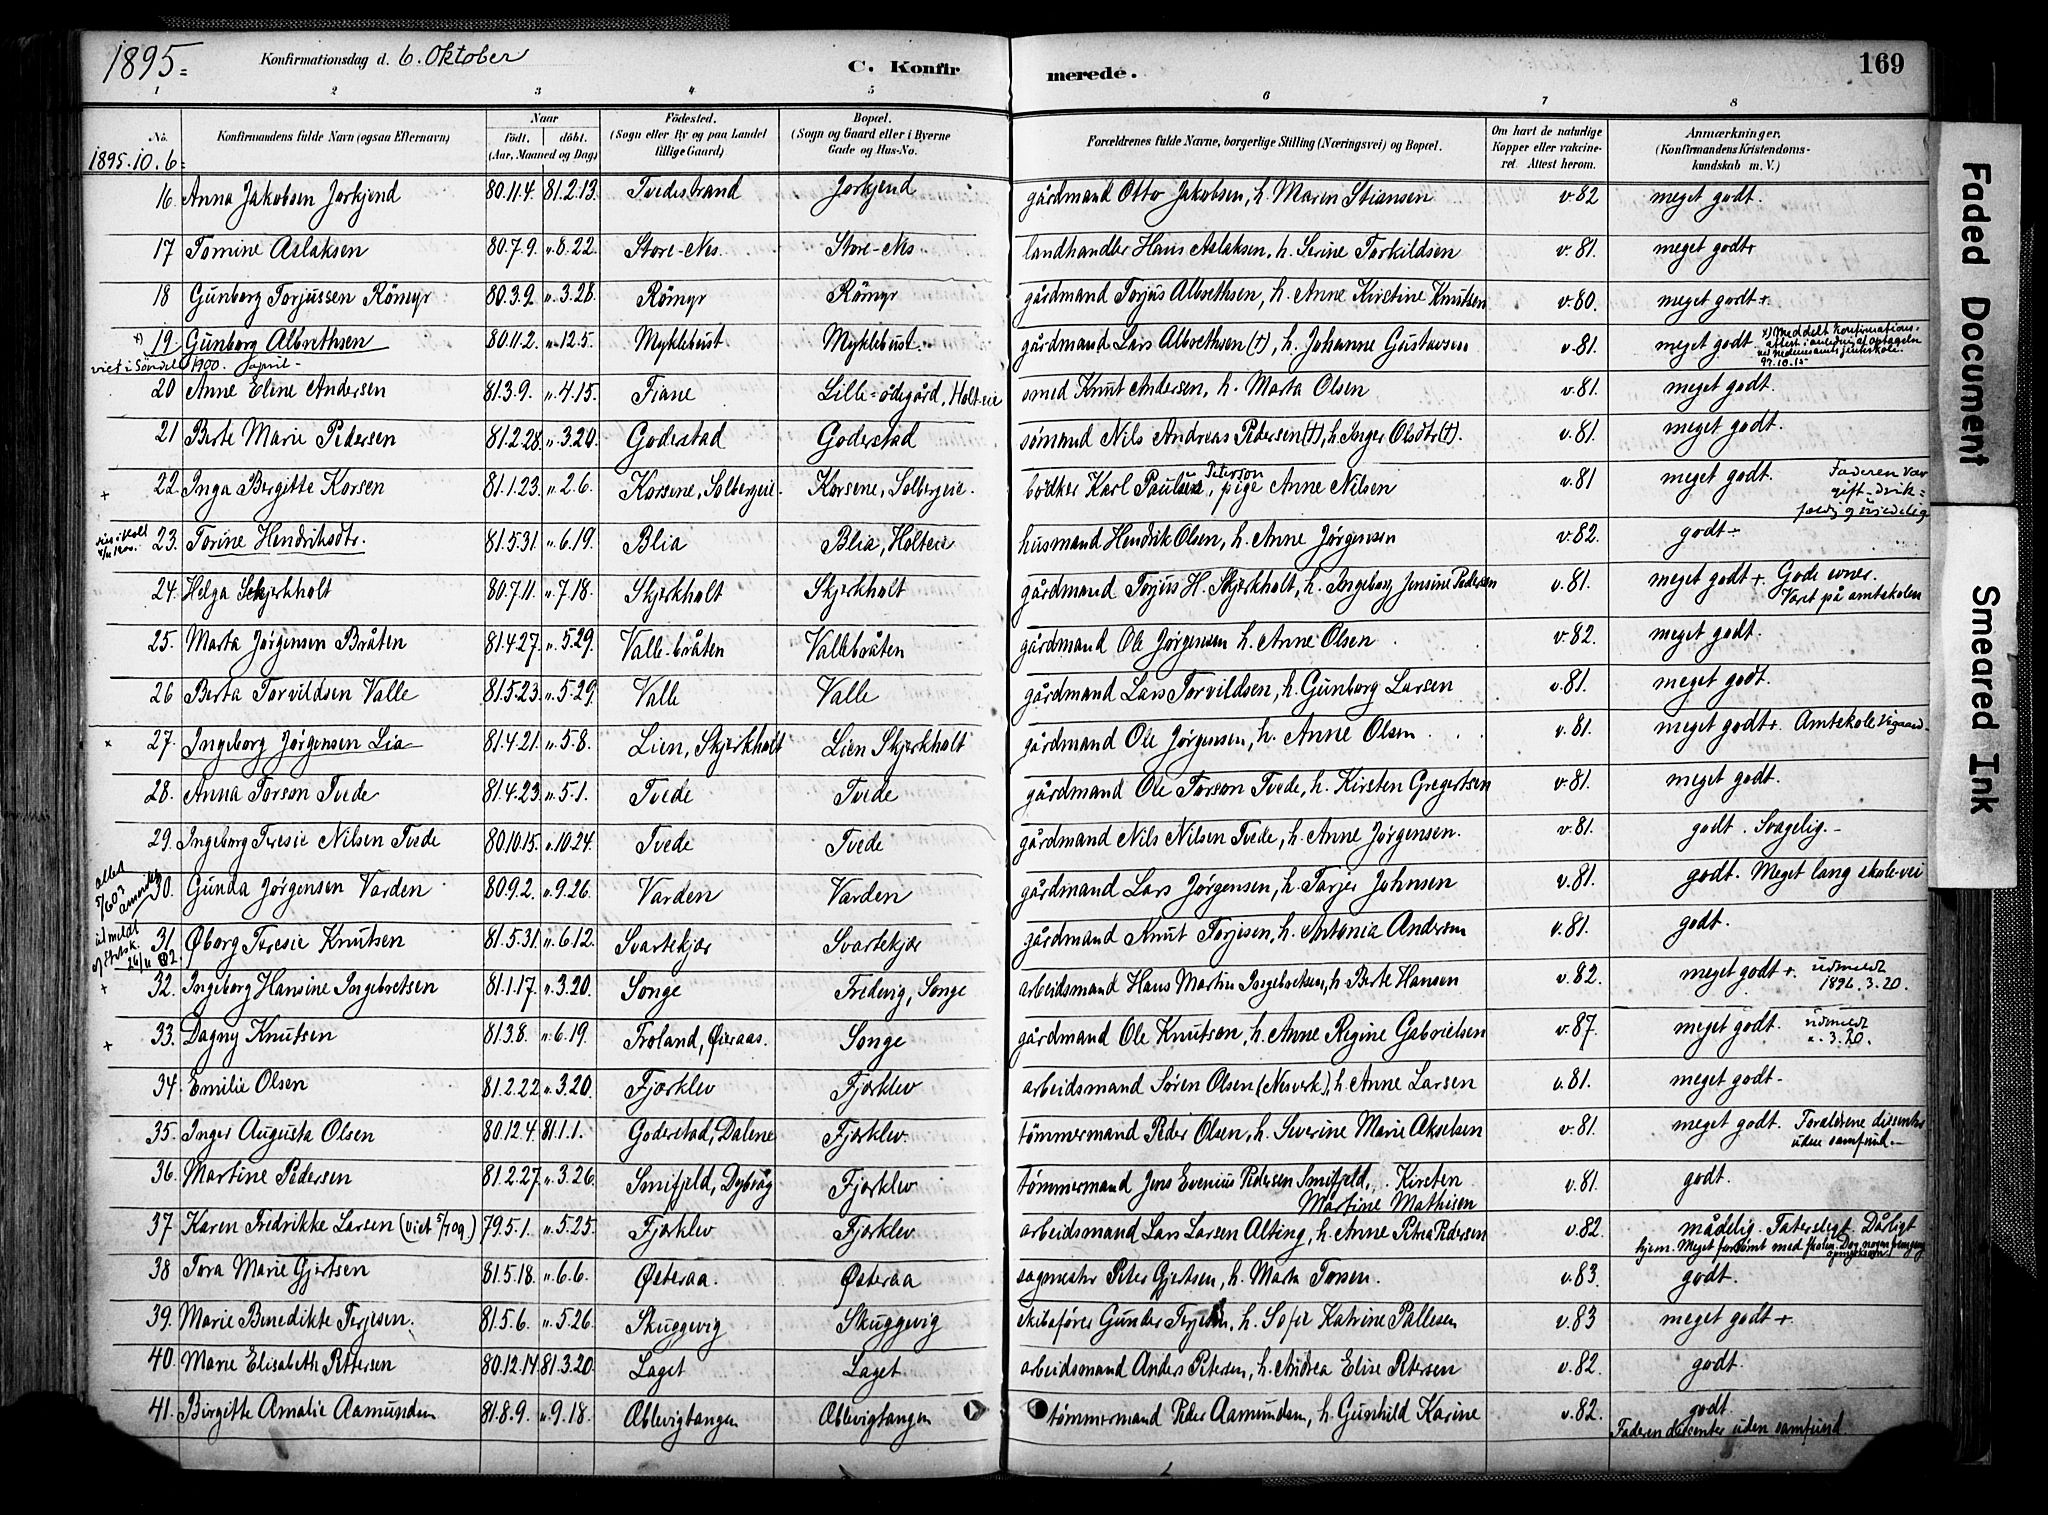 1895.
Konfirmationsdag d. 6. Oktober
C. Konfir
merede.
169
1 2 3 4 5 6 7 8
No.
Konfirmandens fulde Navn (ogsaa Efternavn)
Naar
født. døbt.
(Aar, Maaned og Dag)
Fødested.
(Sogn eller By og paa Landet tillige Gaard)
Bopæl.
(Sogn og Gaard eller i Byerne Gade og Hus-No.
Forældrenes fulde Navne, borgerlige Stilling (Næringsvei) og Bopæl.
Om havt de naturlige Kopper eller vaccineret. Attest herom.
Anmærkninger.
(Konfirmandens Kristendomskundskab m. V.)
1895.10.6
16 Anna Jakobsen Jorkjend 80.11.4. 81.2.13. Tvedestrand Jorkjend gårdmand Otto Jakobsen, h. Maren Stiansen v.82 meget godt.
17 Tomine Aslaksen 80.7.9. „.8.22. Store-Nes. Store-Nes landhandler Hans Aslaksen, h. Serine Torkildsen v.81. meget godt+
18 Gunborg Torjussen Römyr 80.3.9. „.3.28. Römyr Römyr gårdmand Torjus Albrethsen, h. Anne Kirstine Knutsen v.80. meget godt+.
x) 19 Gunborg Albrethsen 80.11.2. „.12.5. Myklebust Myklebust. gårdmand Lars Albrethsen (†), h. Johanne Gustavsen v.81. meget godt x) Meddelt konfirmations-
attest i anledn. af optagelse
ved Nedenesamts pikeskole.
97.10.15
viet i Søndel 1900. April-
20 Anne Eline Andersen 81.3.9. „.4.15. Fiane Lille-ødegård, Holt-eie smed Knut Andersen, h. Marta Olsen v.81. meget godt.
21 Berte Marie Pedersen 81.2.28. „.3.20. Goderstad Goderstad sømand Nils Andreas Pedersen (†), h. Inger Olsdtr (†). v.81. meget godt.
+ 22. Inga Bergitte Korsen 81.1.23. „.2.6. Korsene, Solbergeie. Korsene, Solbergeie. bødker Karl Paulsen Peterson, pige Anne Nilsen v.81 meget godt. Faderen var
gift-drik-
fældig og uredelig
23. Torine Hendriksdtr. 81.5.31 „.6.19. Blia Blia, Holteie husmand Hendrik Olsen, h. Anne Jørgensen v.82. godt-
24. Helga Skjerkholt 80.7.11. „.7.18. Skjerkholt Skjerkholt gårdmand Torjus H. Skjerkholt, h. Ingeborg Jensine Pedersen v.81. meget godt+. Gode evner.
Været på amtskolen
25. Marta Jørgensen Bråten 81.4.27. „.5.29. Valle-bråten Vallebråten gårdmand Ole Jørgensen h. Anne Olsen v.82. meget godt.
26 Berta Torvildsen Valle 81.5.23. „.5.29. Valle Valle gårdmand Lars Torvildsen, h. Gunborg Larsen v.81. meget godt.
x 27. Ingeborg Jørgensen Lia 81.4.21. „.5.8. Lien, Skjerkholt Lien Skjerkholt gårdmand Ole Jørgensen, h. Anne Olsen v.81. meget godt+. Amtskole
28. Anna Torson Tvede 81.4.23. „.5.1. Tvede Tvede gårdmand Ole Torson Tvede, h. Kirsten Gregertsen v.81. meget godt.
29. Ingeborg Teresie Nilsen Tvede 80.10.15. „.10.24. Tvede Tvede gårdmand Nils Nilsen Tvede, h. Anne Jørgensen. v.81. godt. Svagelig.-
30. Gunda Jørgensen Varden 80.9.2. „.9.26. Varden Varden gårdmand Lars Jørgensen, h. Tarjer Johnsen v.81. godt. Meget lang skole-vei
attest
5/6 03
amerika
31. Øborg Teresie Knutsen 81.5.31. „.6.12. Svartekjær Svartekjær gårdmand Knut Torjesen, h. Antonia Andersen v.81. godt.
udmeldt
af Statsk.
+ 32. Ingeborg Hansine Ingebretsen 81.1.17. „.3.20. Songe Fredvig, Songe arbeidsmand Hans Martin Ingebretsen, h. Berte Hansen v.82. meget godt+. udmeldt
1896.3.20.
+ 33. Dagny Knutsen 81.3.8. „.6.19. Froland, Øieraas. Songe gårdmand Ole Knutson, h. Anne Regine Gabrielsen v.87. meget godt. udmeldt
„.3.20.
34. Emilie Olsen 81.2.22. „.3.20. Fjærklev Fjærklev arbeidsmand Søren Olsen (Nesverk), h. Anne Larsen v.81. meget godt-
35. Inger Augusta Olsen 80.12.4. 81.1.1. Goderstad, Dalene Fjærklev. tømmermand Peder Olsen, h. Severine Marie Akselsen v.81. meget godt. Forældrene dissentere
uden samfund.-
36. Martine Pedersen 81.2.27. „.3.26. Smifjeld, Dybvåg Fjærklev tømmermand Jens Evenius Pedersen Smifjeld, Kirsten
Martine Mathisen v.81. godt.
37 Karen Fredrikke Larsen (viet 5/7 09) 79.5.1. „.5.25. Fjærklev Fjærklev arbeidsmand Lars Larsen Alting, h. Anne Petrea Pedersen v.82. mådelig. Taterslegt. Dårligt
hjem. Meget forsømt med skolen. Dog nogen fremgang
38 Tora Marie Gjertsen 81.5.18. „.6.6. Østeraa. Østeraa sagmester Peter Gjertsen, h. Marta Torsen. v.83. godt.
39. Marie Benedikte Terjesen. 81.5.6. „.5.26. Skuggevig Skuggevig skibsfører Gunder Terjesen, h. Sofie Katrine Pallesen v.83 meget godt+.
40. Marie Elisabeth Pettersen 80.12.14 81.3.20. Laget Laget arbeidsmand Anders Petersen, h. Andrea Elise Petersen v.82. godt.
41. Birgitte Amalie Aamundsen 81.8.9. „.9.18. Ablevigtangen Ablevigtangen tømmermand Peder Aamundsen, h. Gunhild Karine v.82. godt.
Faderen dissenter uden samfund
Faded Document
Smeared Ink